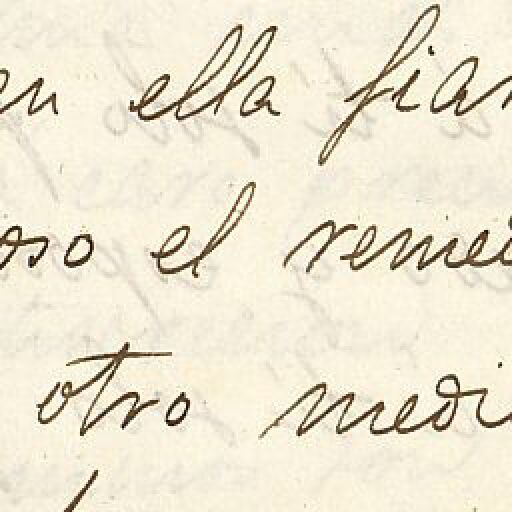 en ella fian
oso el remed
otro medi